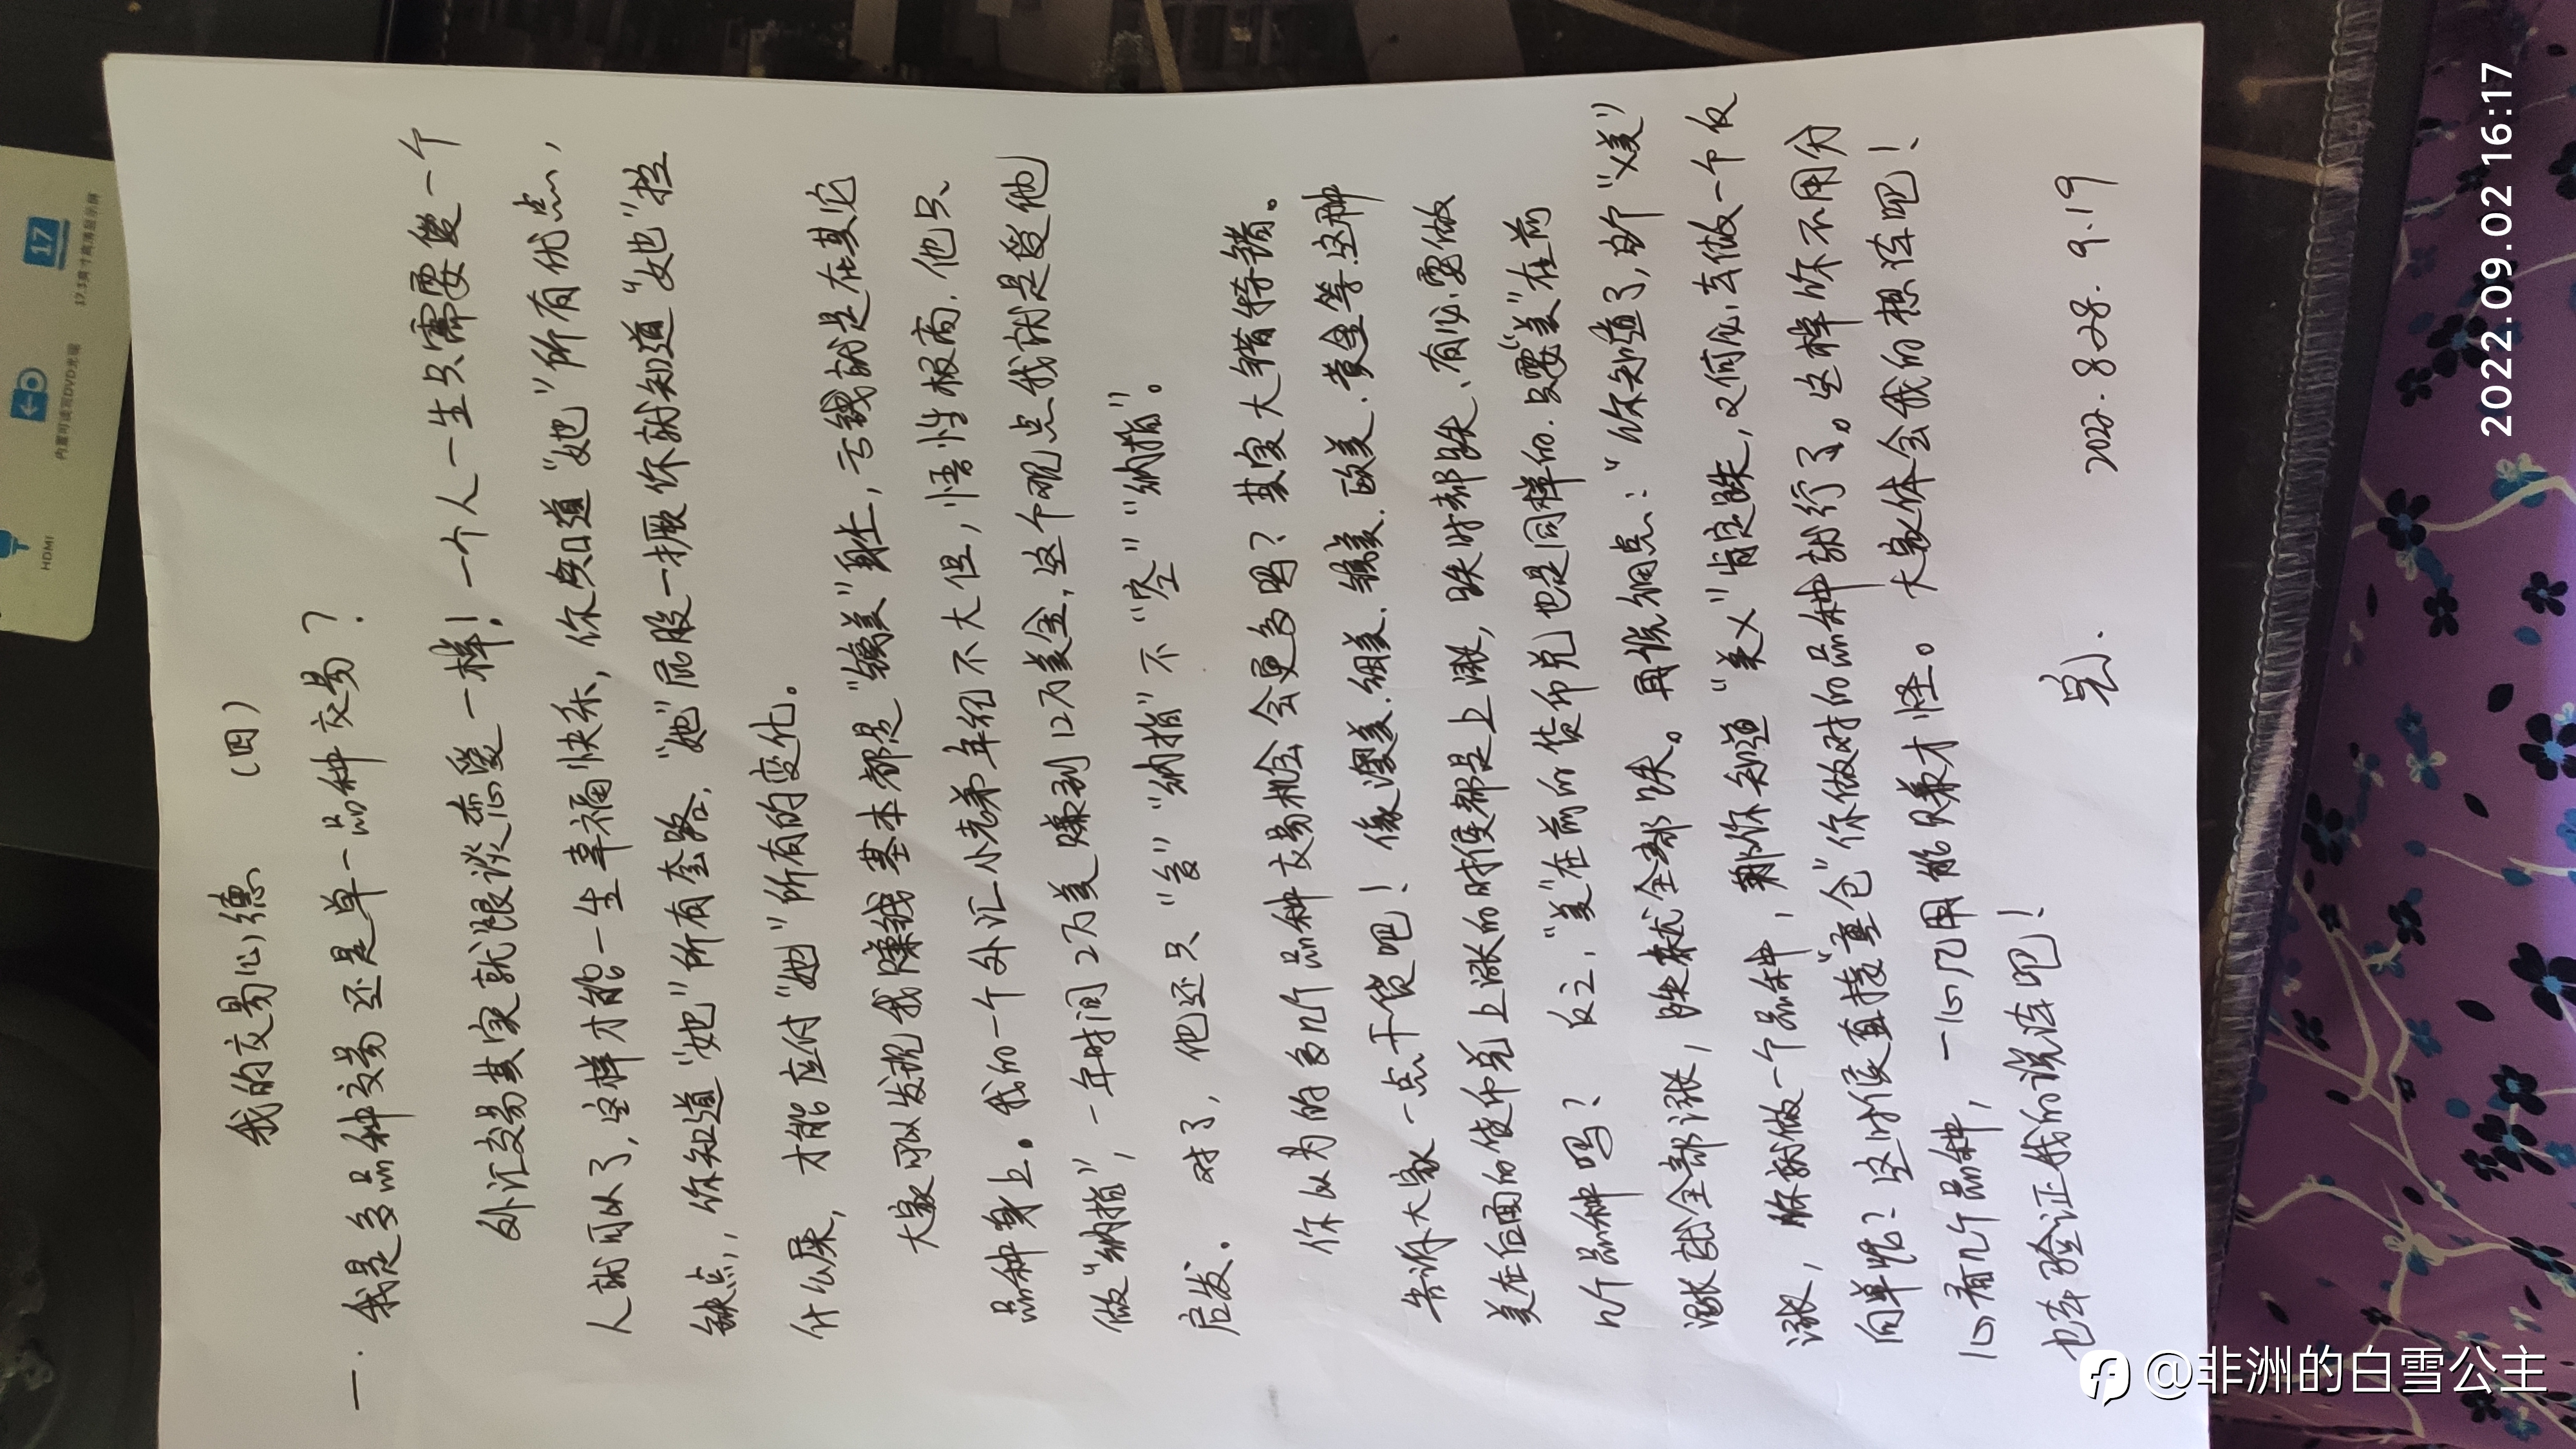 我的交易心德 （四）
一. 我是多品种交易还是单一品种交易？
外汇交易其实就跟谈恋爱一样！一个人一生只需要爱一个
人就可以了，这样才能一生幸福快乐，你知道“她”所有优点，
缺点，你知道“她”所有套路，“她”屁股一撅你就知道“她”拉
什么屎，才能应付“她”所有的变化。
大家可以发现我赚钱基本都是“镑美”身上，亏钱就是在其它
品种身上。我的一个外汇小老弟年纪不大但，悟性极高，他只
做“纳指”，一年时间2万美赚到12万美金，这个观点我就是受他
启发。对了，他还只“多”“纳指”不“空”“纳指”。
你以为的多几个品种交易机会会更多吗？其实大错特错。
告诉大家一点干货吧！像澳美.纽美.镑美.欧美.黄金等这种
美在后面的货币兑上涨的时候都是上涨，跌时都跌、有必要做
几个品种吗？反之，“美”在前的货币兑也是同样的.只要“美”在前
涨就全部涨，跌就全部跌。再说细点：“你知道了，当“X美”
涨，你就做一个品种，那你知道“美X”肯定跌，又何必去做一个反
向单呢？这时候直接“重仓”你做对的品种就行了。这样你不用分
心看几个品种，一心几用能赚才怪。大家体会我的想法吧！
也去验证我的说法吧！
2022.8.28. 9.19
17
17.3英寸高清显示屏
内置可读写DVD光驱
HDMI
2022.09.02 16:17
@非洲的白雪公主